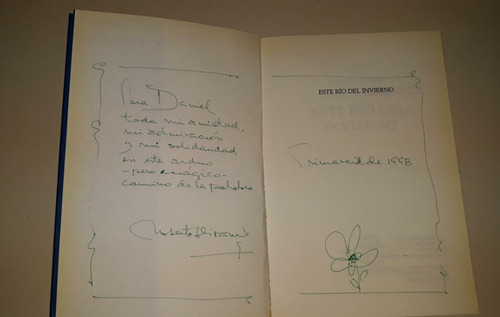 Para Daniel
toda mi amistad,
mi admiración
y mi solidaridad
en este arduo
-pero mágico-
camino de la palabra
ESTE RÍO DEL INVIERNO
ESTE RÍO DEL
INVIERNO
de 1998